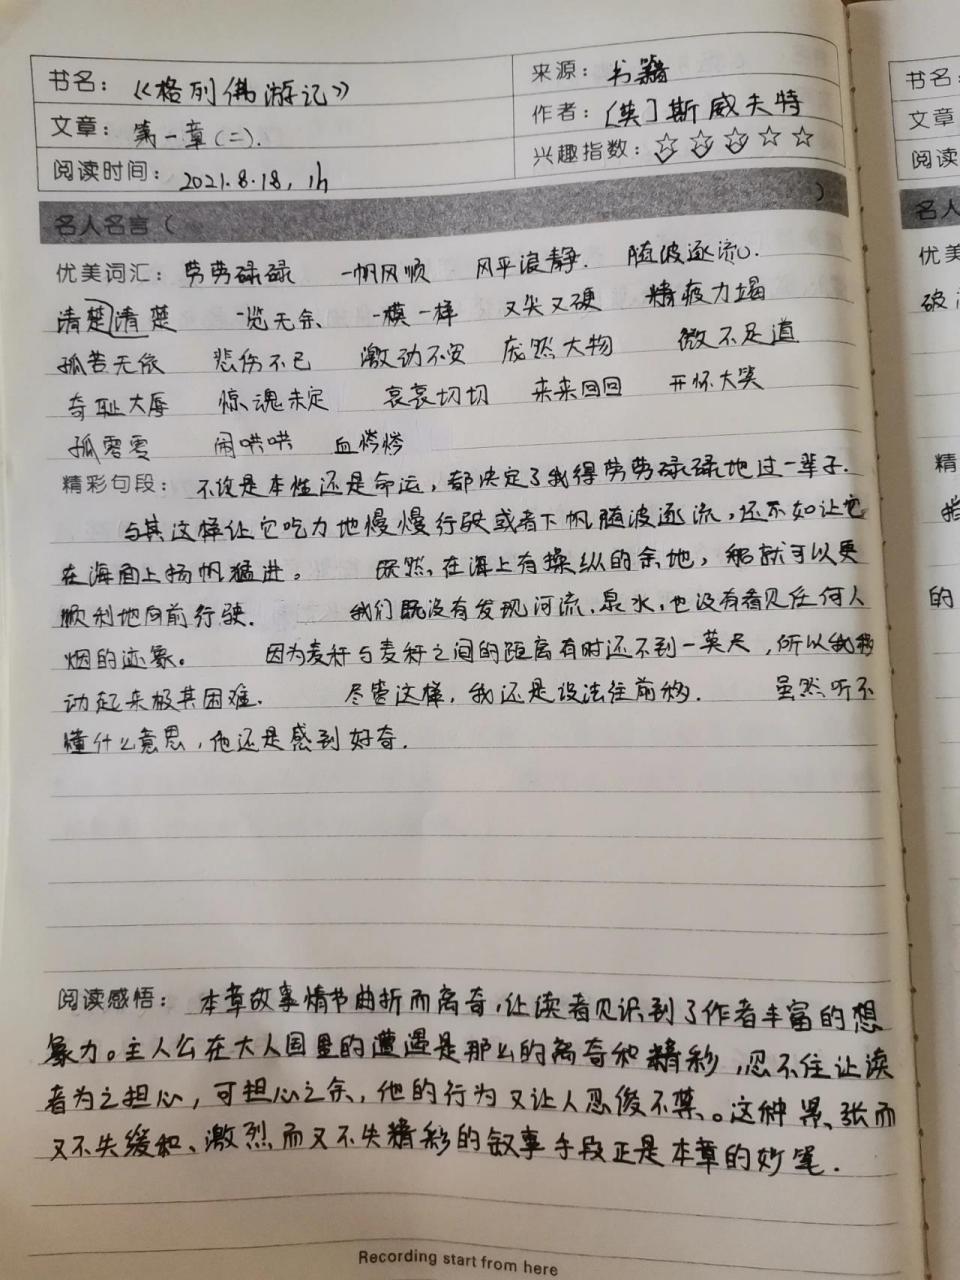 书名：《格列佛游记》 来源：书籍
文章：第一章(二). 作者：[英]斯威夫特
阅读时间：2021.8.18, 1h 兴趣指数：☆☆☆☆☆
名人名言（ ）
优美词汇：劳劳碌碌 一帆风顺 风平浪静. 随波逐流.
清楚清楚 一览无余 一模一样 又尖又硬 精疲力竭
孤苦无依 悲伤不已 激动不安 庞然大物 微不足道
奇耻大辱 惊魂未定 哀哀切切 来来回回 开怀大笑
孤零零 闹哄哄 血愕愕
精彩句段：不论是本性还是命运，都决定了我得劳劳碌碌地过一辈子.
与其这样让它吃力地慢慢行驶或者下帆随波逐流，还不如让它
在海面上扬帆猛进。 既然在海上有操纵的余地，船就可以更
顺利地向前行驶. 我们既没有发现河流、泉水，也没有看见任何人
烟的迹象。 因为麦秆与麦秆之间的距离有时还不到一英尺，所以我移
动起来极其困难. 尽管这样，我还是设法往前移. 虽然听不
懂什么意思，他还是感到好奇.
阅读感悟：本章故事情节曲折而离奇，让读者见识到了作者丰富的想
象力。主人公在大人国里的遭遇是那么的离奇和精彩，忍不住让读
者为之担心，可担心之余，他的行为又让人忍俊不禁。这种紧张而
又不失缓和、激烈而又不失精彩的叙事手段正是本章的妙笔.
Recording start from here
书名
文章
阅读
名人
优美
破
精
的